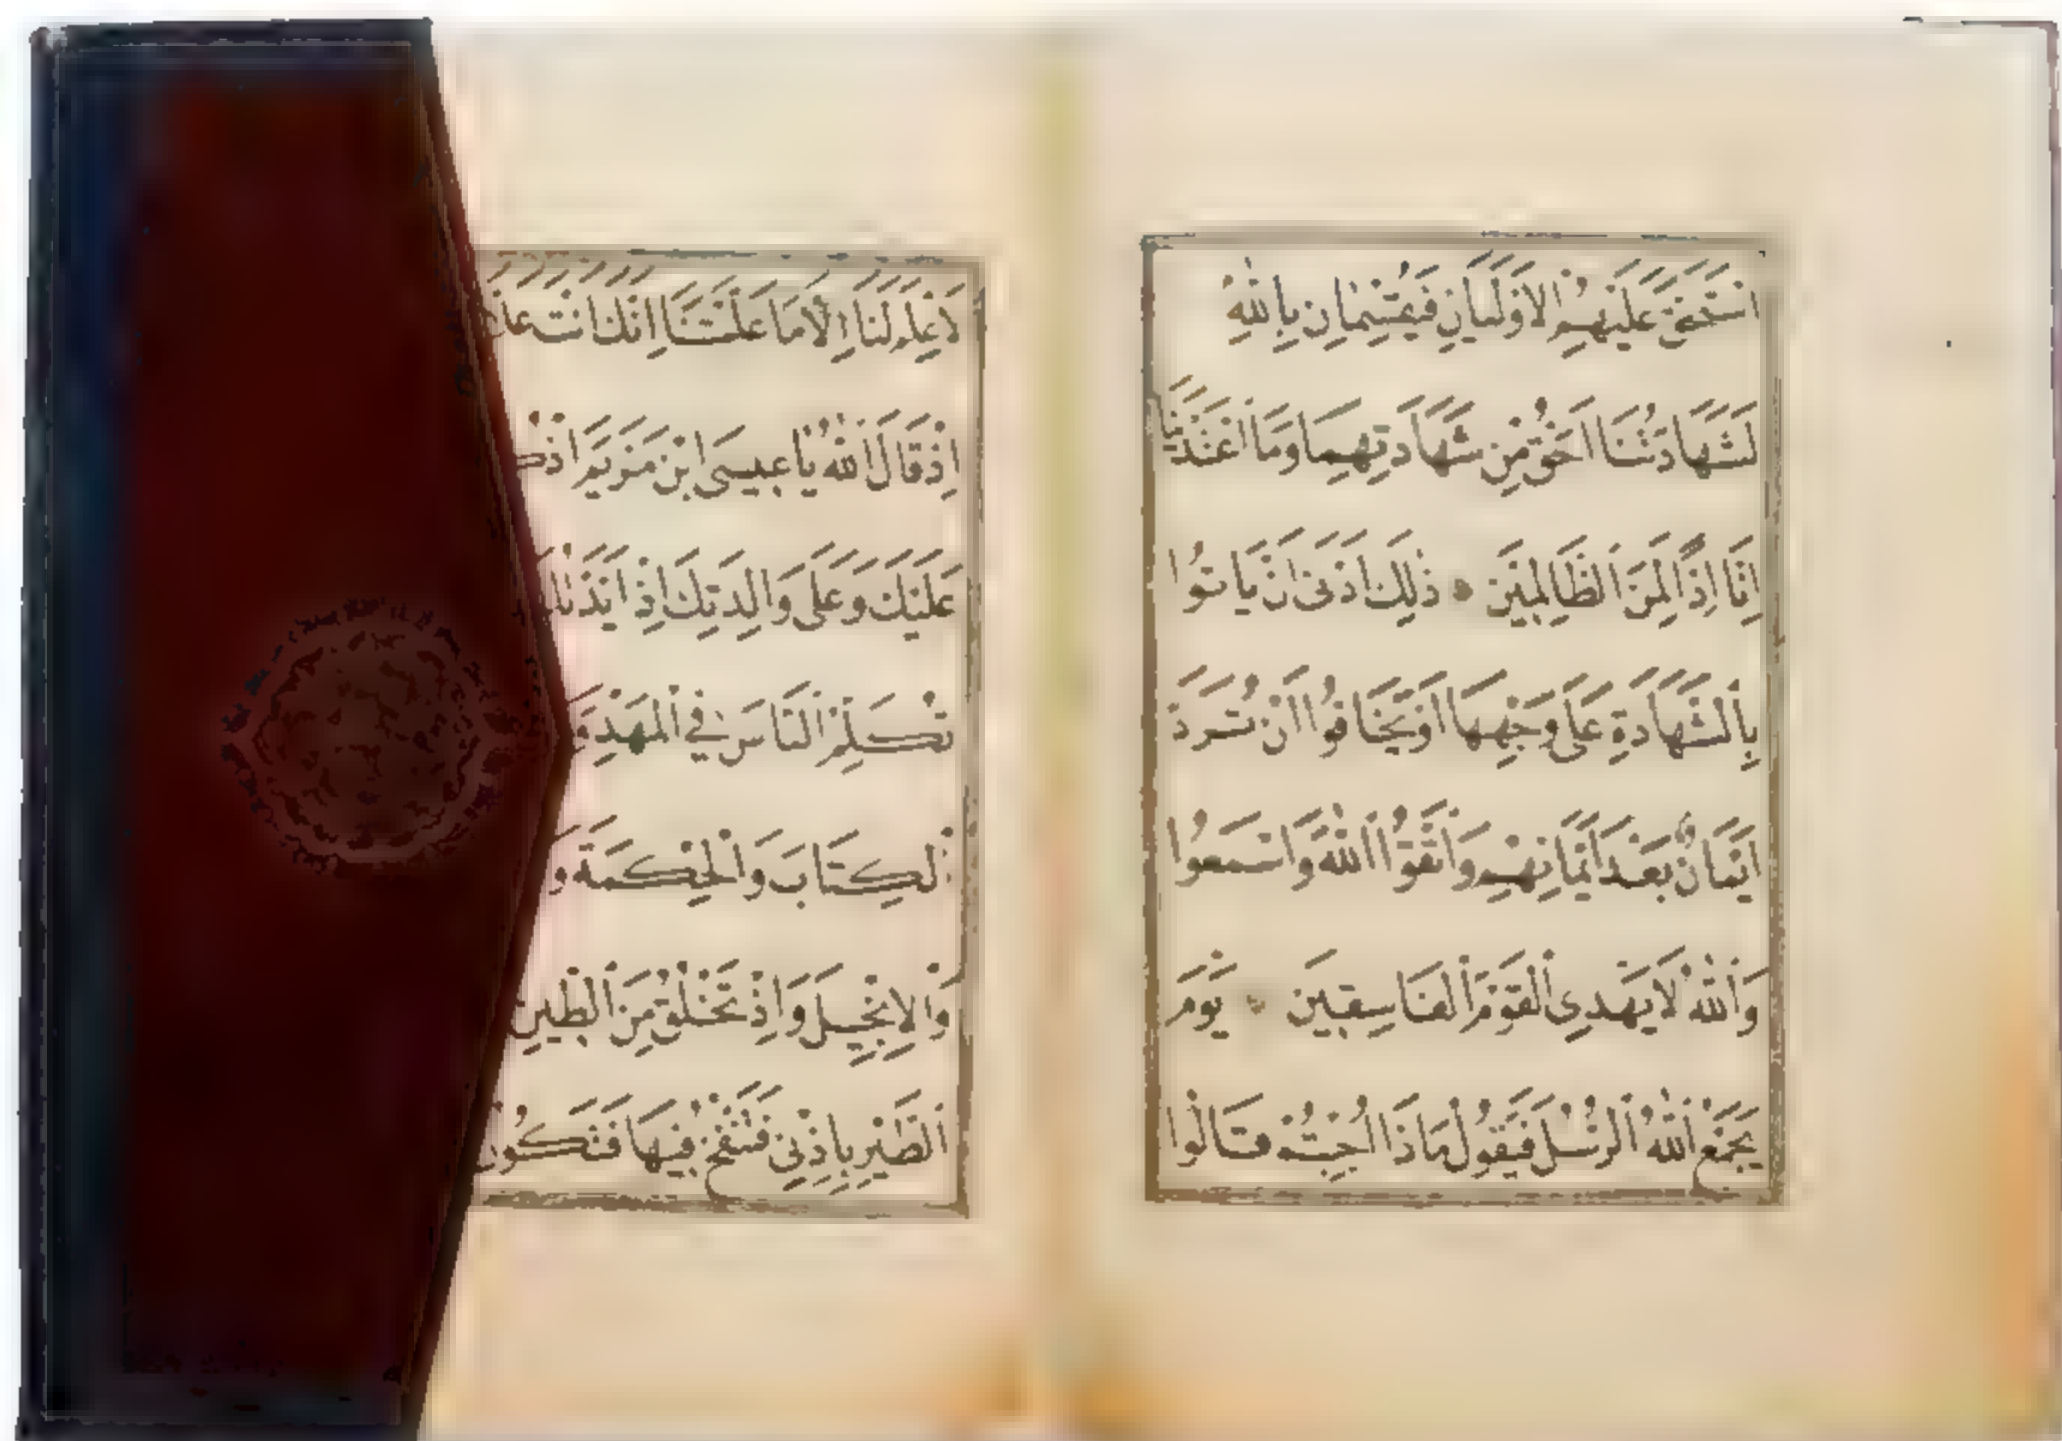 اسْتَحَقَّ عَلَيْهِمُ الْأَوْلَيَانِ فَيُقْسِمَانِ بِاللَّهِ
لَشَهَادَتُنَا أَحَقُّ مِنْ شَهَادَتِهِمَا وَمَا اعْتَدَيْنَا
إِنَّا إِذًا لَمِنَ الظَّالِمِينَ ۝ ذَلِكَ أَدْنَى أَنْ يَأْتُوا
بِالشَّهَادَةِ عَلَى وَجْهِهَا أَوْ يَخَافُوا أَنْ تُرَدَّ
أَيْمَانٌ بَعْدَ أَيْمَانِهِمْ وَاتَّقُوا اللَّهَ وَاسْمَعُوا
وَاللَّهُ لَا يَهْدِي الْقَوْمَ الْفَاسِقِينَ ۝ يَوْمَ
يَجْمَعُ اللَّهُ الرُّسُلَ فَيَقُولُ مَاذَا أُجِبْتُمْ قَالُوا
لَا عِلْمَ لَنَا إِلَّا مَا عَلَّمْتَنَا إِنَّكَ أَنْتَ
إِذْ قَالَ اللَّهُ يَا عِيسَى ابْنَ مَرْيَمَ
عَلَيْكَ وَعَلَى وَالِدَتِكَ إِذْ
تُكَلِّمُ النَّاسَ فِي الْمَهْدِ
الْكِتَابَ وَالْحِكْمَةَ
وَالْإِنْجِيلَ وَإِذْ تَخْلُقُ مِنَ الطِّينِ
الطَّيْرِ بِإِذْنِي فَتَنْفُخُ فِيهَا فَتَكُونُ